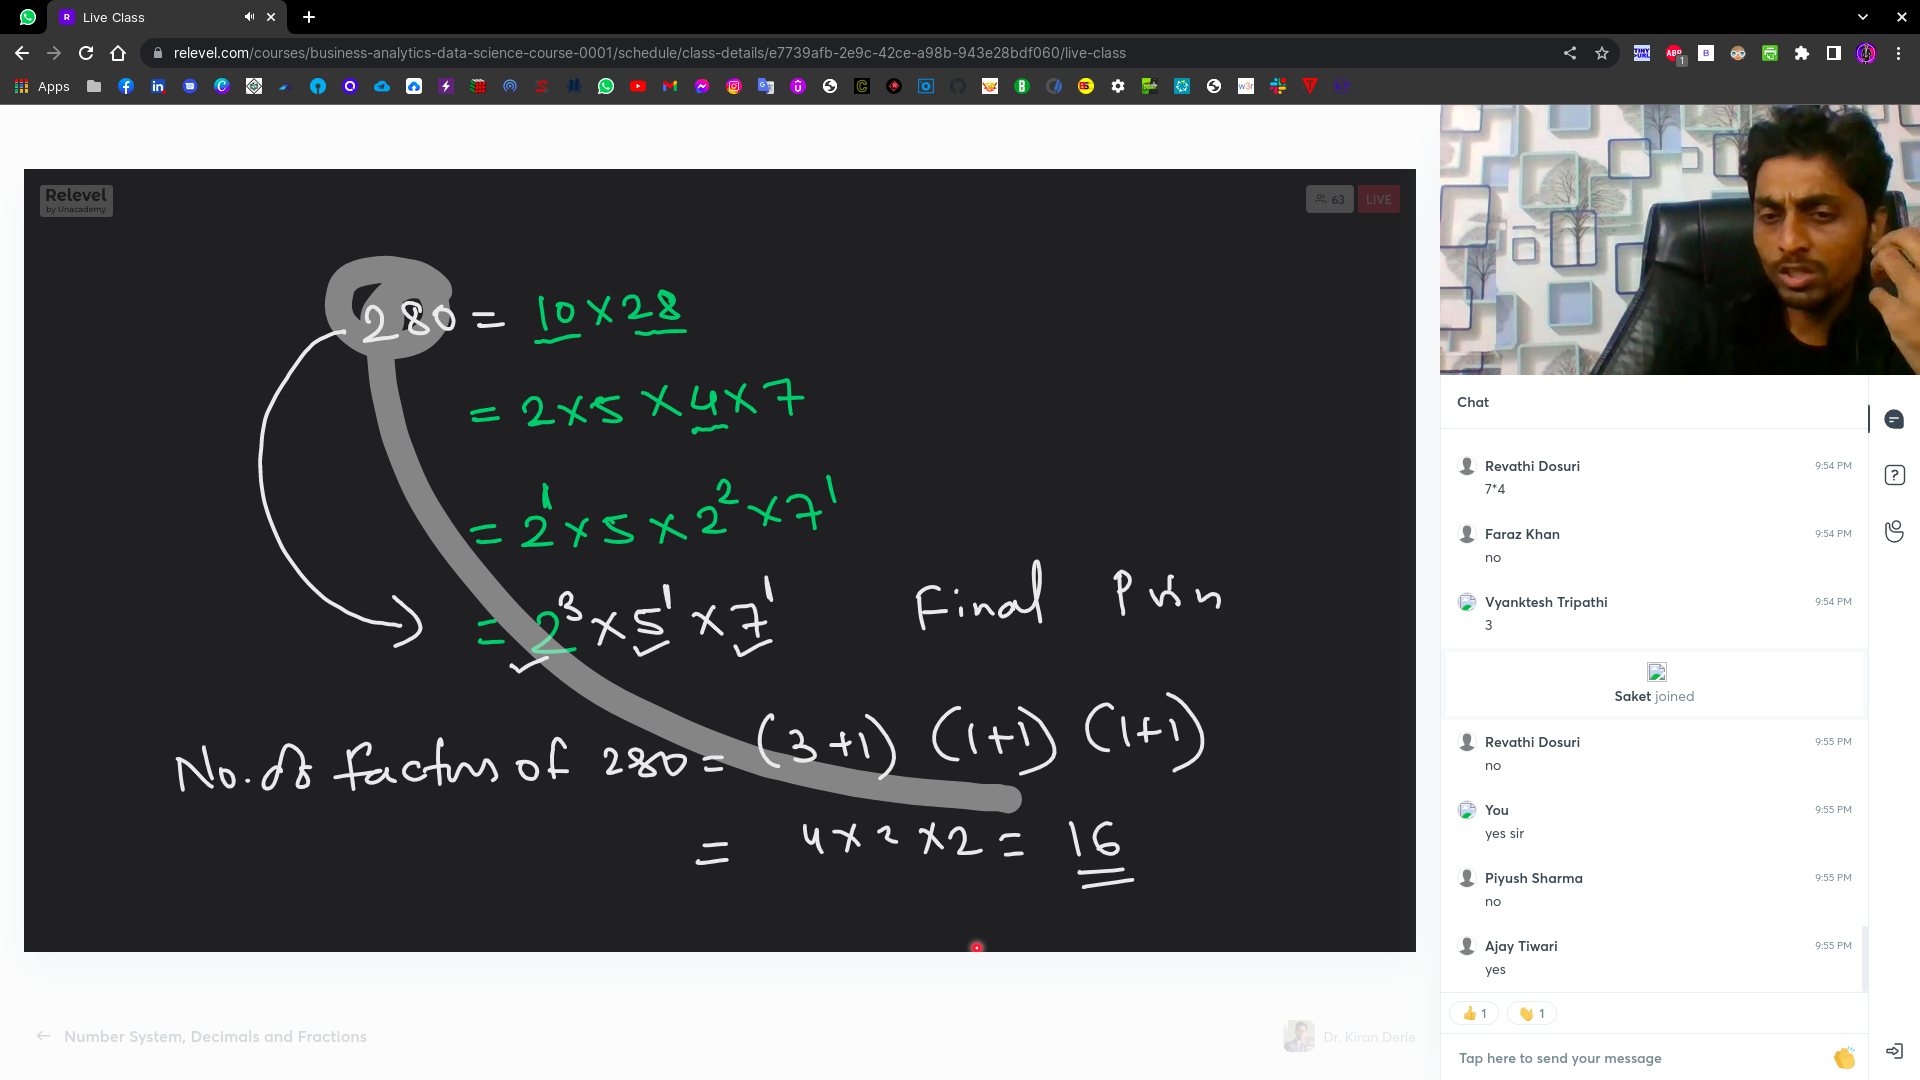 Live Class
relevel.com/courses/business-analytics-data-science-course-0001/schedule/class-details/e7739afb-2e9c-42ce-a98b-943e28bdf060/live-class
Apps
Relevel
by Unacademy
63
LIVE
280 = 10 × 28
= 2 × 5 × 4 × 7
= 2¹ × 5 × 2² × 7¹
= 2³ × 5¹ × 7¹
Final
No. of factors of 280 = (3+1) (1+1) (1+1)
= 4 × 2 × 2 = 16
Number System, Decimals and Fractions
Dr. Kiran Derle
Chat
Revathi Dosuri 9:54 PM
7*4
Faraz Khan 9:54 PM
no
Vyanktesh Tripathi 9:54 PM
3
Saket joined
Revathi Dosuri 9:55 PM
no
You 9:55 PM
yes sir
Piyush Sharma 9:55 PM
no
Ajay Tiwari 9:55 PM
yes
👍 1 👏 1
Tap here to send your message